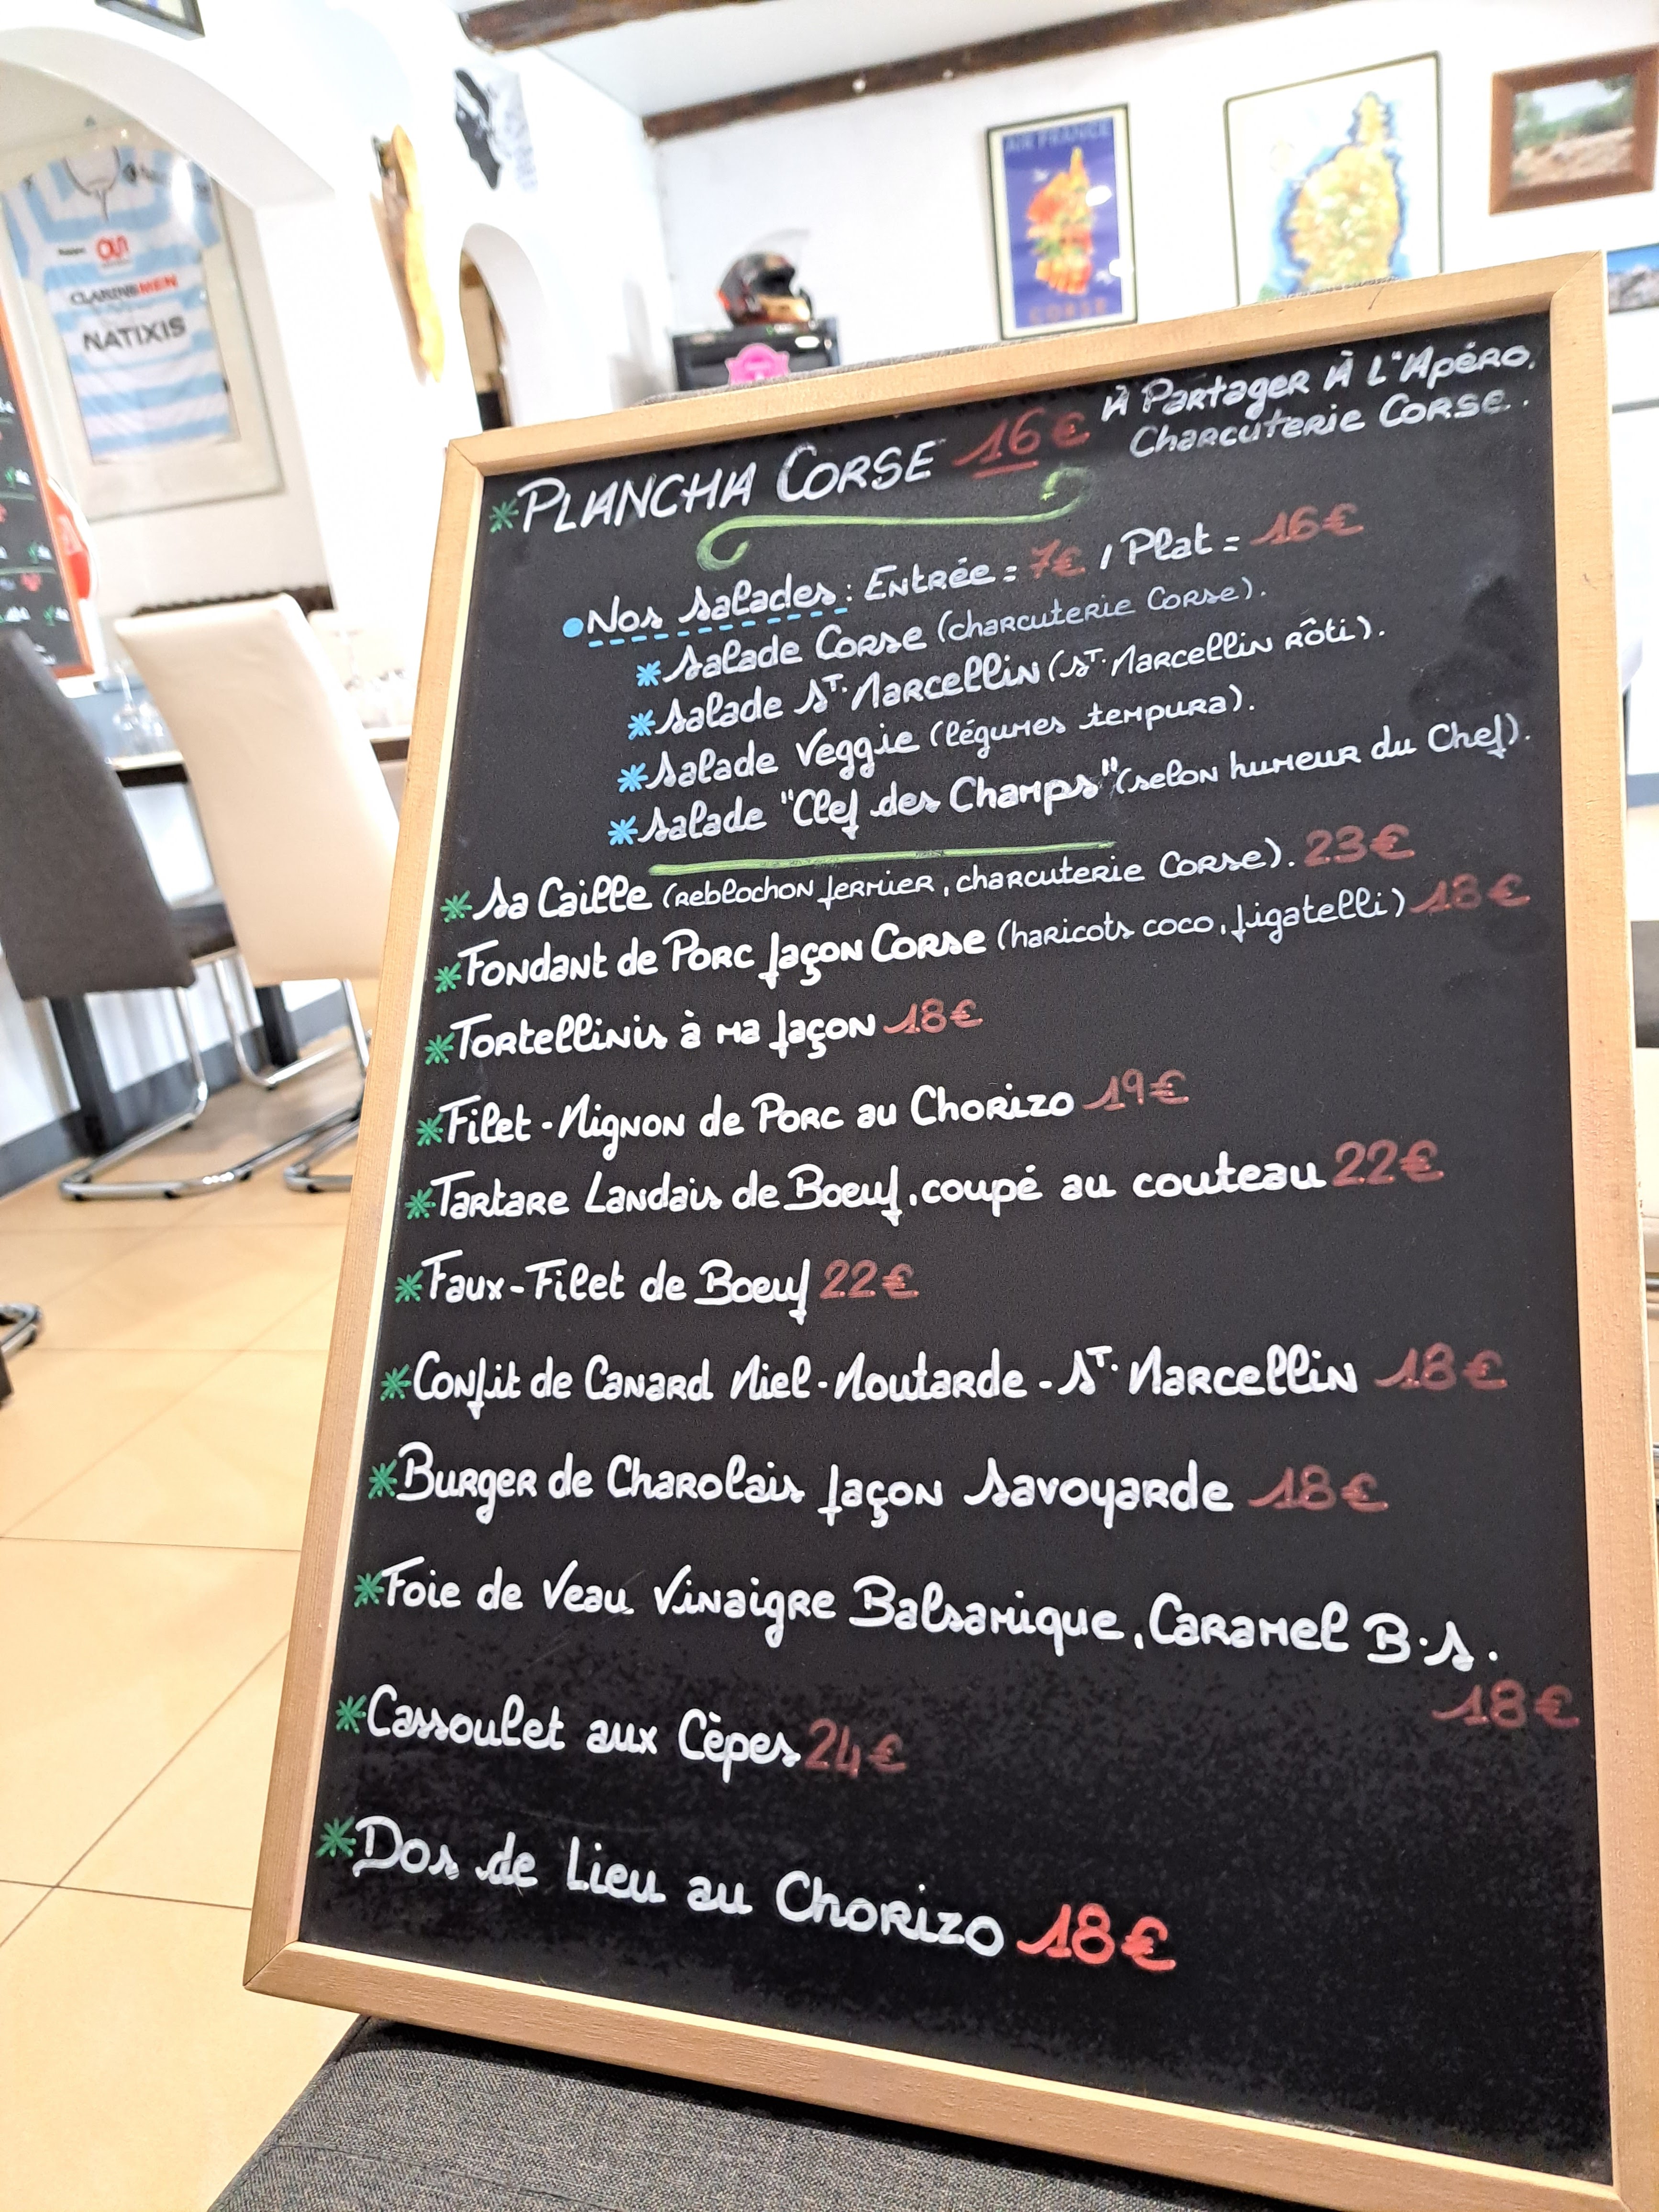 AIR FRANCE
CORSE
CLARINSMEN
NATIXIS
*PLANCHA CORSE 16€ À Partager À L'Apéro,
Charcuterie Corse.
Nos Salades : Entrée = 7€ / Plat = 16€
*Salade Corse (charcuterie Corse).
*Salade St. Marcellin (St. Marcellin rôti).
*Salade Veggie (légumes tempura).
*Salade "Clef des Champs" (selon humeur du Chef).
*Sa Caille (reblochon fermier, charcuterie Corse). 23€
*Fondant de Porc façon Corse (haricots coco, figatelli) 18€
*Tortellinis à ma façon 18€
*Filet-Mignon de Porc au Chorizo 19€
*Tartare Landais de Boeuf, coupé au couteau 22€
*Faux-Filet de Boeuf 22€
*Confit de Canard Miel-Moutarde-St. Marcellin 18€
*Burger de Charolais façon Savoyarde 18€
*Foie de Veau Vinaigre Balsamique, Caramel B.S.
18€
*Cassoulet aux Cèpes 24€
*Dos de Lieu au Chorizo 18€